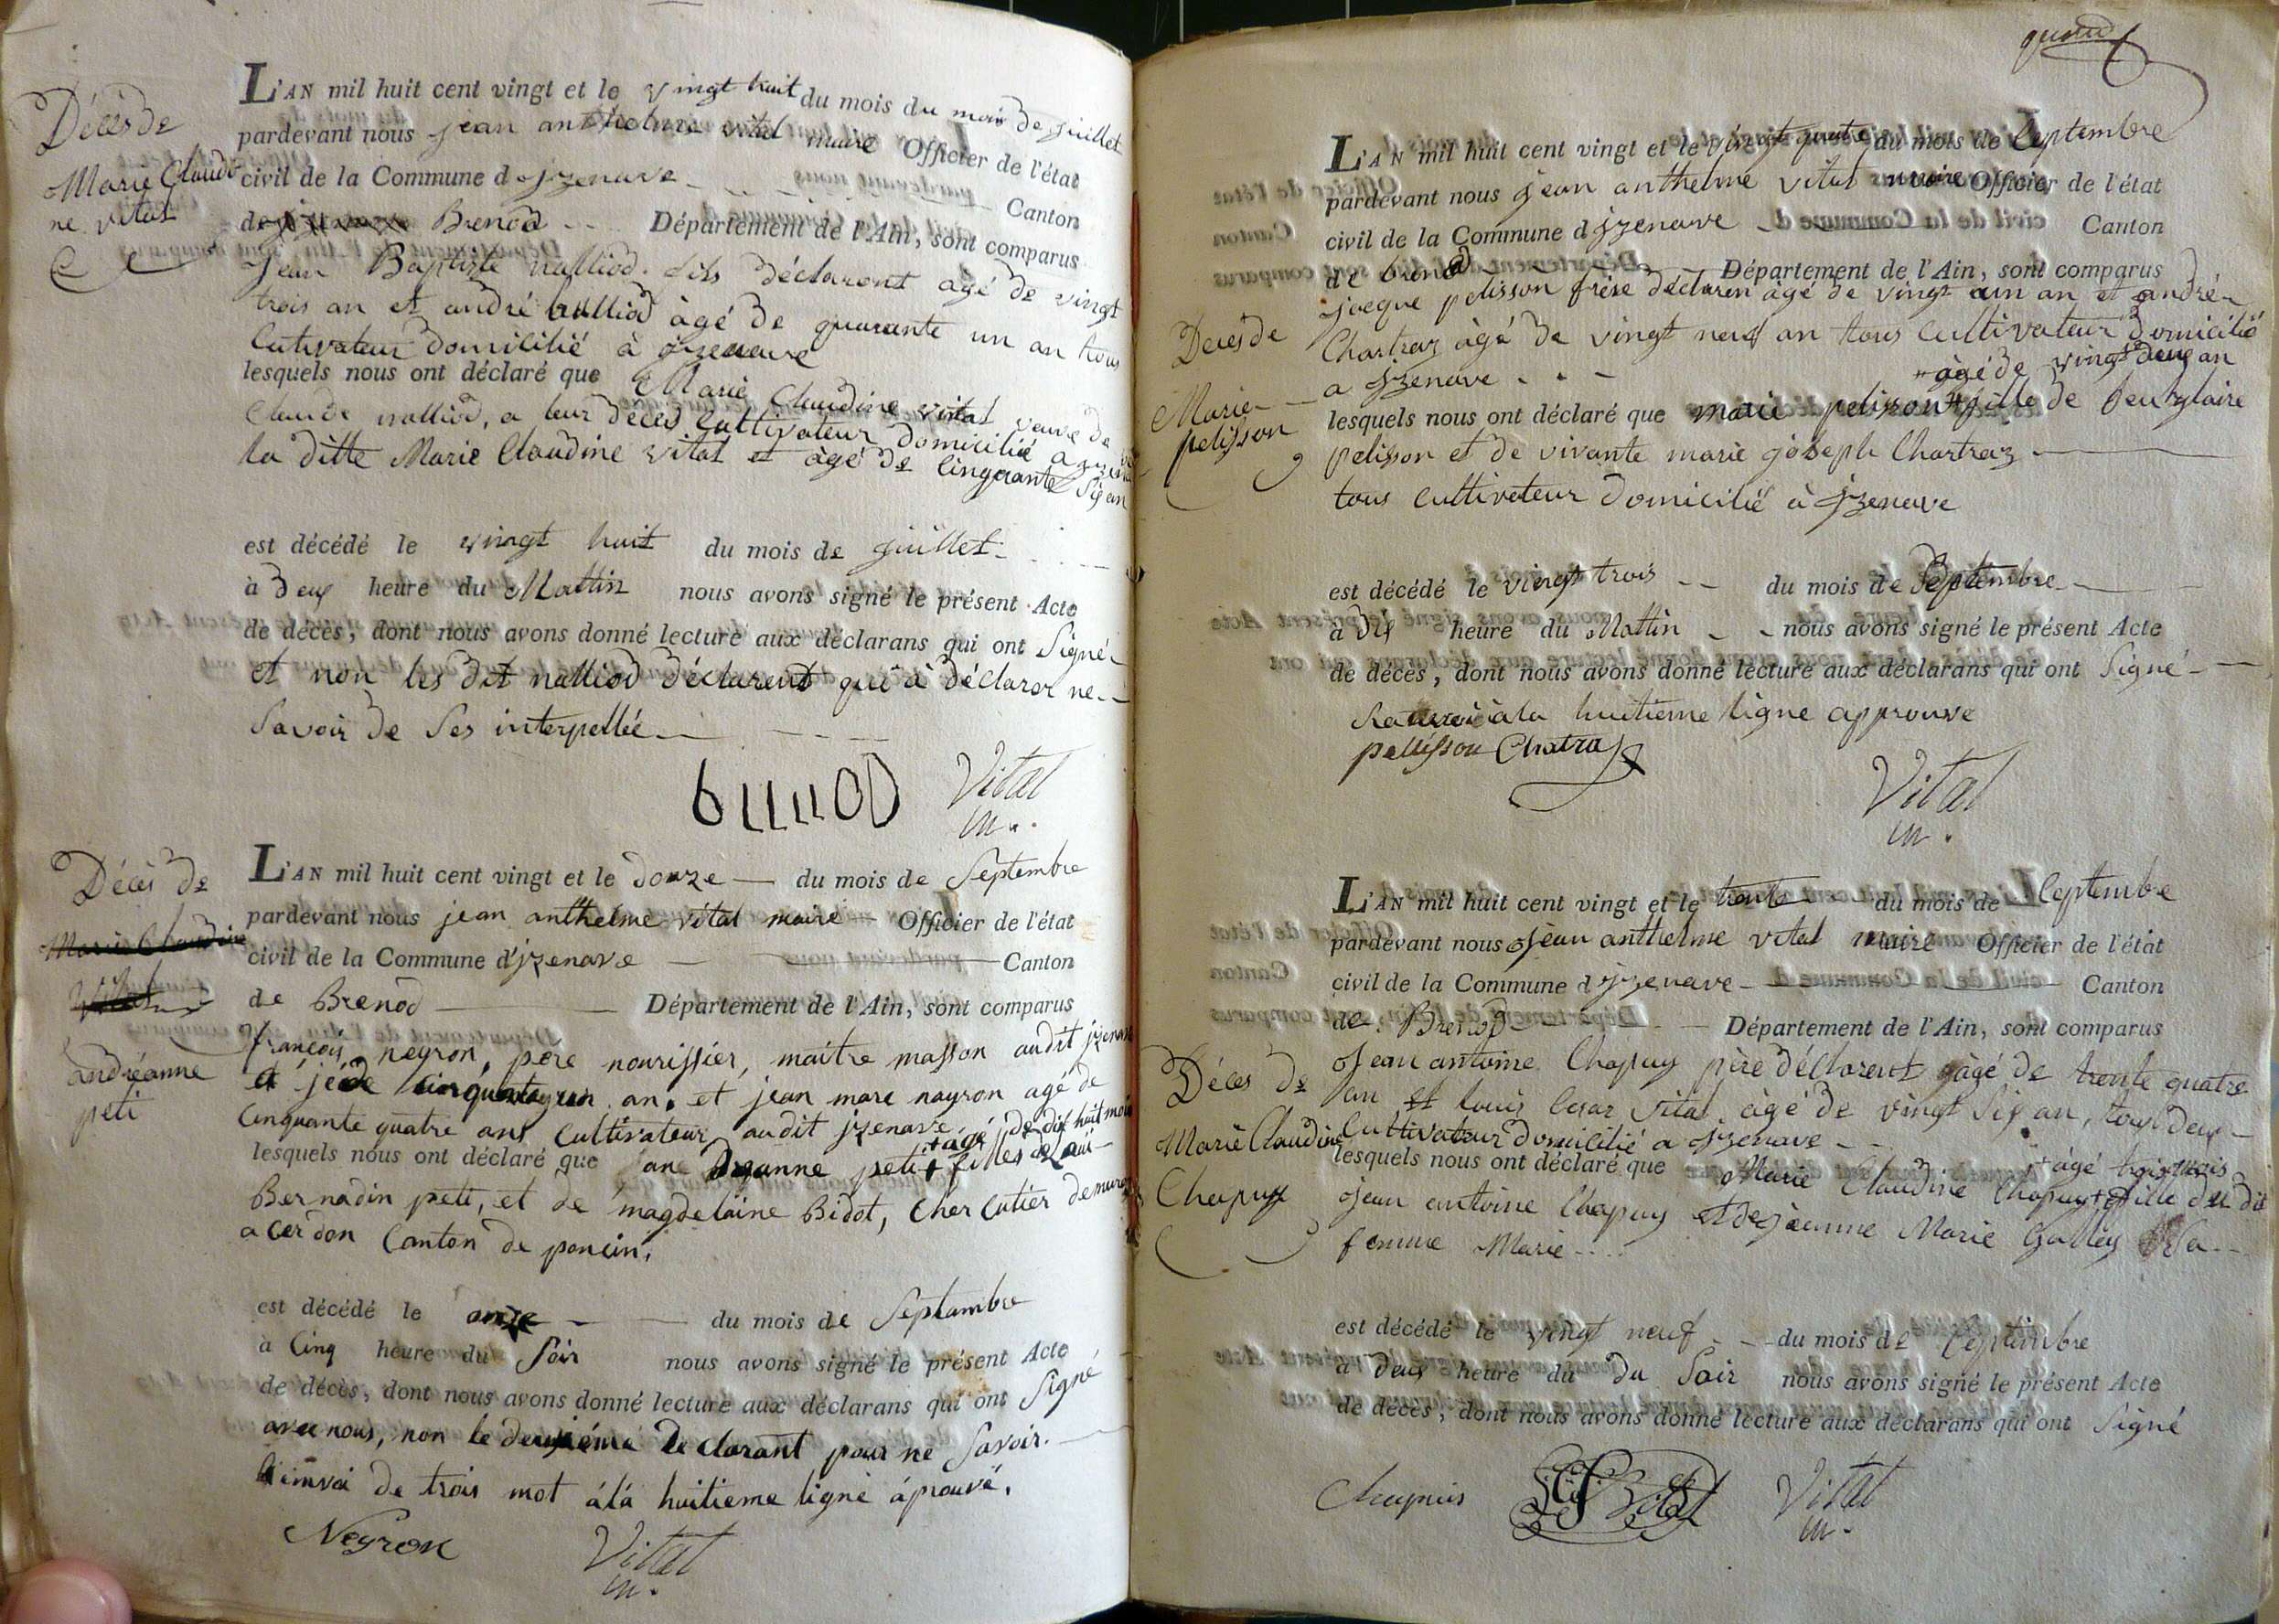 Décès de
Marie Claudi
ne vital
L'AN mil huit cent vingt et le vingt huit du mois du mois de juillet
pardevant nous jean anthelme vital maire Officier de l'état
civil de la Commune d jzenave Canton
de Brenod Département de l'Ain, sont comparus
Jean Baptiste nalliod fils déclarent agé de vingt
trois an et andré nalliod àgé de quarante un an tous
Cutivateur domicilié à jzenave
lesquels nous ont déclaré que Marie Claudine vital veuve de
Claude nalliod, a leur déces Cultivateur domicilié a
la ditte Marie Claudine vital et àgé de Cinqrante Six an
est décédé le vingt huit du mois de juillet
à deux heure du Mattin nous avons signé le présent Acte
de décès, dont nous avons donné lecture aux déclarans qui ont Signé
et non les dit nalliod déclarent qui à déclaror ne
Savoir de Ses interpellée
Vital
m.
Décès de
Marie Claudine
Vital
andréanne
peti
L'AN mil huit cent vingt et le douze du mois de Septembre
pardevant nous jean anthelme vital maire Officier de l'état
civil de la Commune d'jzenave Canton
de Brenod Département de l'Ain, sont comparus
françois neyron, pere nourissier, maitre masson audit jzenave
et jéde Cinquante un an. et jean marc nayron agé de
Cinquante quatre ans Cultivateur audit jzenave
+ agé de dix huit mois
lesquels nous ont déclaré que peti + filles de Loui
Bernadin peti, et de magdelaine Bidot, Chercutier demurant
a cerdon Canton de poncin,
est décédé le onze du mois de Septambre
à Cinq heure du Soir nous avons signé le présent Acte
de décès, dont nous avons donné lecture aux déclarans qui ont Signé
avec nous, non le deuxiéme declarant pour ne Savoir.
Reinvoi de trois mot álá huitieme ligne áprouvé.
Neyron
Vital
m.
L'AN mil huit cent vingt et le vingt quatre du mois de Septembre
pardevant nous jean anthelme vital maire Officier de l'état
civil de la Commune d jzenave Canton
de brenod Département de l'Ain, sont comparus
Deces de
Marie
pelisson
jacque pelisson frère déclaren àgé de vingt cun an et andré
Chartraz àgé de vingt neuf an tous Cultivateur Domicilié
a jzenave
àgé de vingt deux an
lesquels nous ont déclaré que marie pelisson + fille de feu
pelisson et de vivante marie joseph Chartraz
tous Cultiveteur domicilié à jzenave
est décédé le viengt trois du mois de Septembre
à dix heure du Mattin nous avons signé le présent Acte
de décès, dont nous avons donné lecture aux déclarans qui ont Signé
Ranvoi à la huitieme ligne approuve
pellisson Chatra
Vital
m.
L'AN mil huit cent vingt et le trente du mois de Septembre
pardevant nous jean anthelme vital maire Officier de l'état
civil de la Commune d jzenave Canton
de Brenod Département de l'Ain, sont comparus
Déces de
Marie Claudine
Chapuy
Jean antoine Chapuy père déclarent àgé de trente quatre
an et louis Cesar vital àgé de vingt Six an, tous deux
Cultivateur domicilié a jzenave
+ agé trois mois
lesquels nous ont déclaré que Marie Claudine Chapuy + fille du dit
jean antoine Chapuy et de jeanne Marie Galley Sa
femme Marie
est décédé le vingt neuf du mois de Septembre
à deux heure du du Soir nous avons signé le présent Acte
de décès, dont nous avons donné lecture aux déclarans qui ont Signé
Chapuis
Vital
Vital
m.